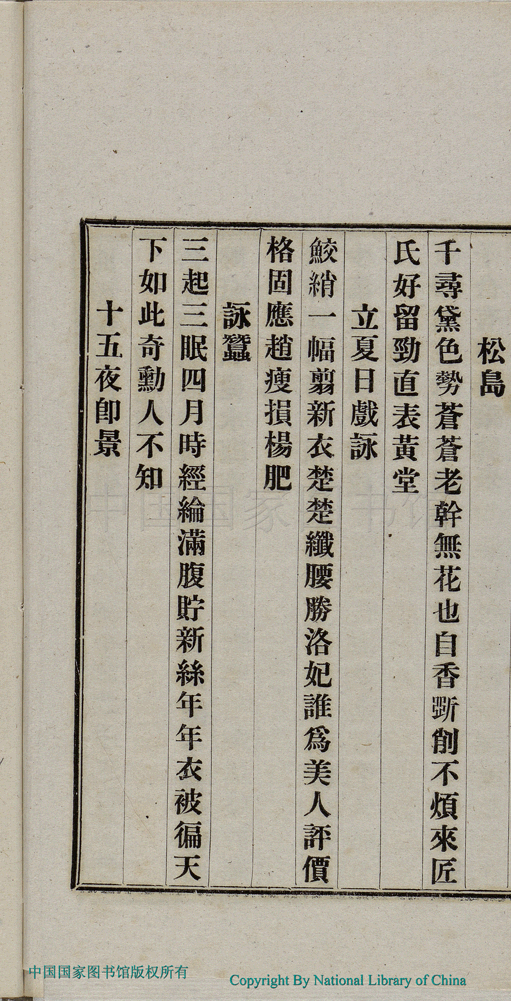 松島
千尋黛色勢蒼蒼老幹無花也自香斲削不煩來匠
氏好留勁直表黃堂
立夏日戲詠
鮫綃一幅翦新衣楚楚纖腰勝洛妃誰爲美人評價
格固應趙瘦損楊肥
詠蠶
三起三眠四月時經綸滿腹貯新絲年年衣被徧天
下如此奇勳人不知
十五夜卽景
中国国家图书馆
中国国家图书馆版权所有
Copyright By National Library of China